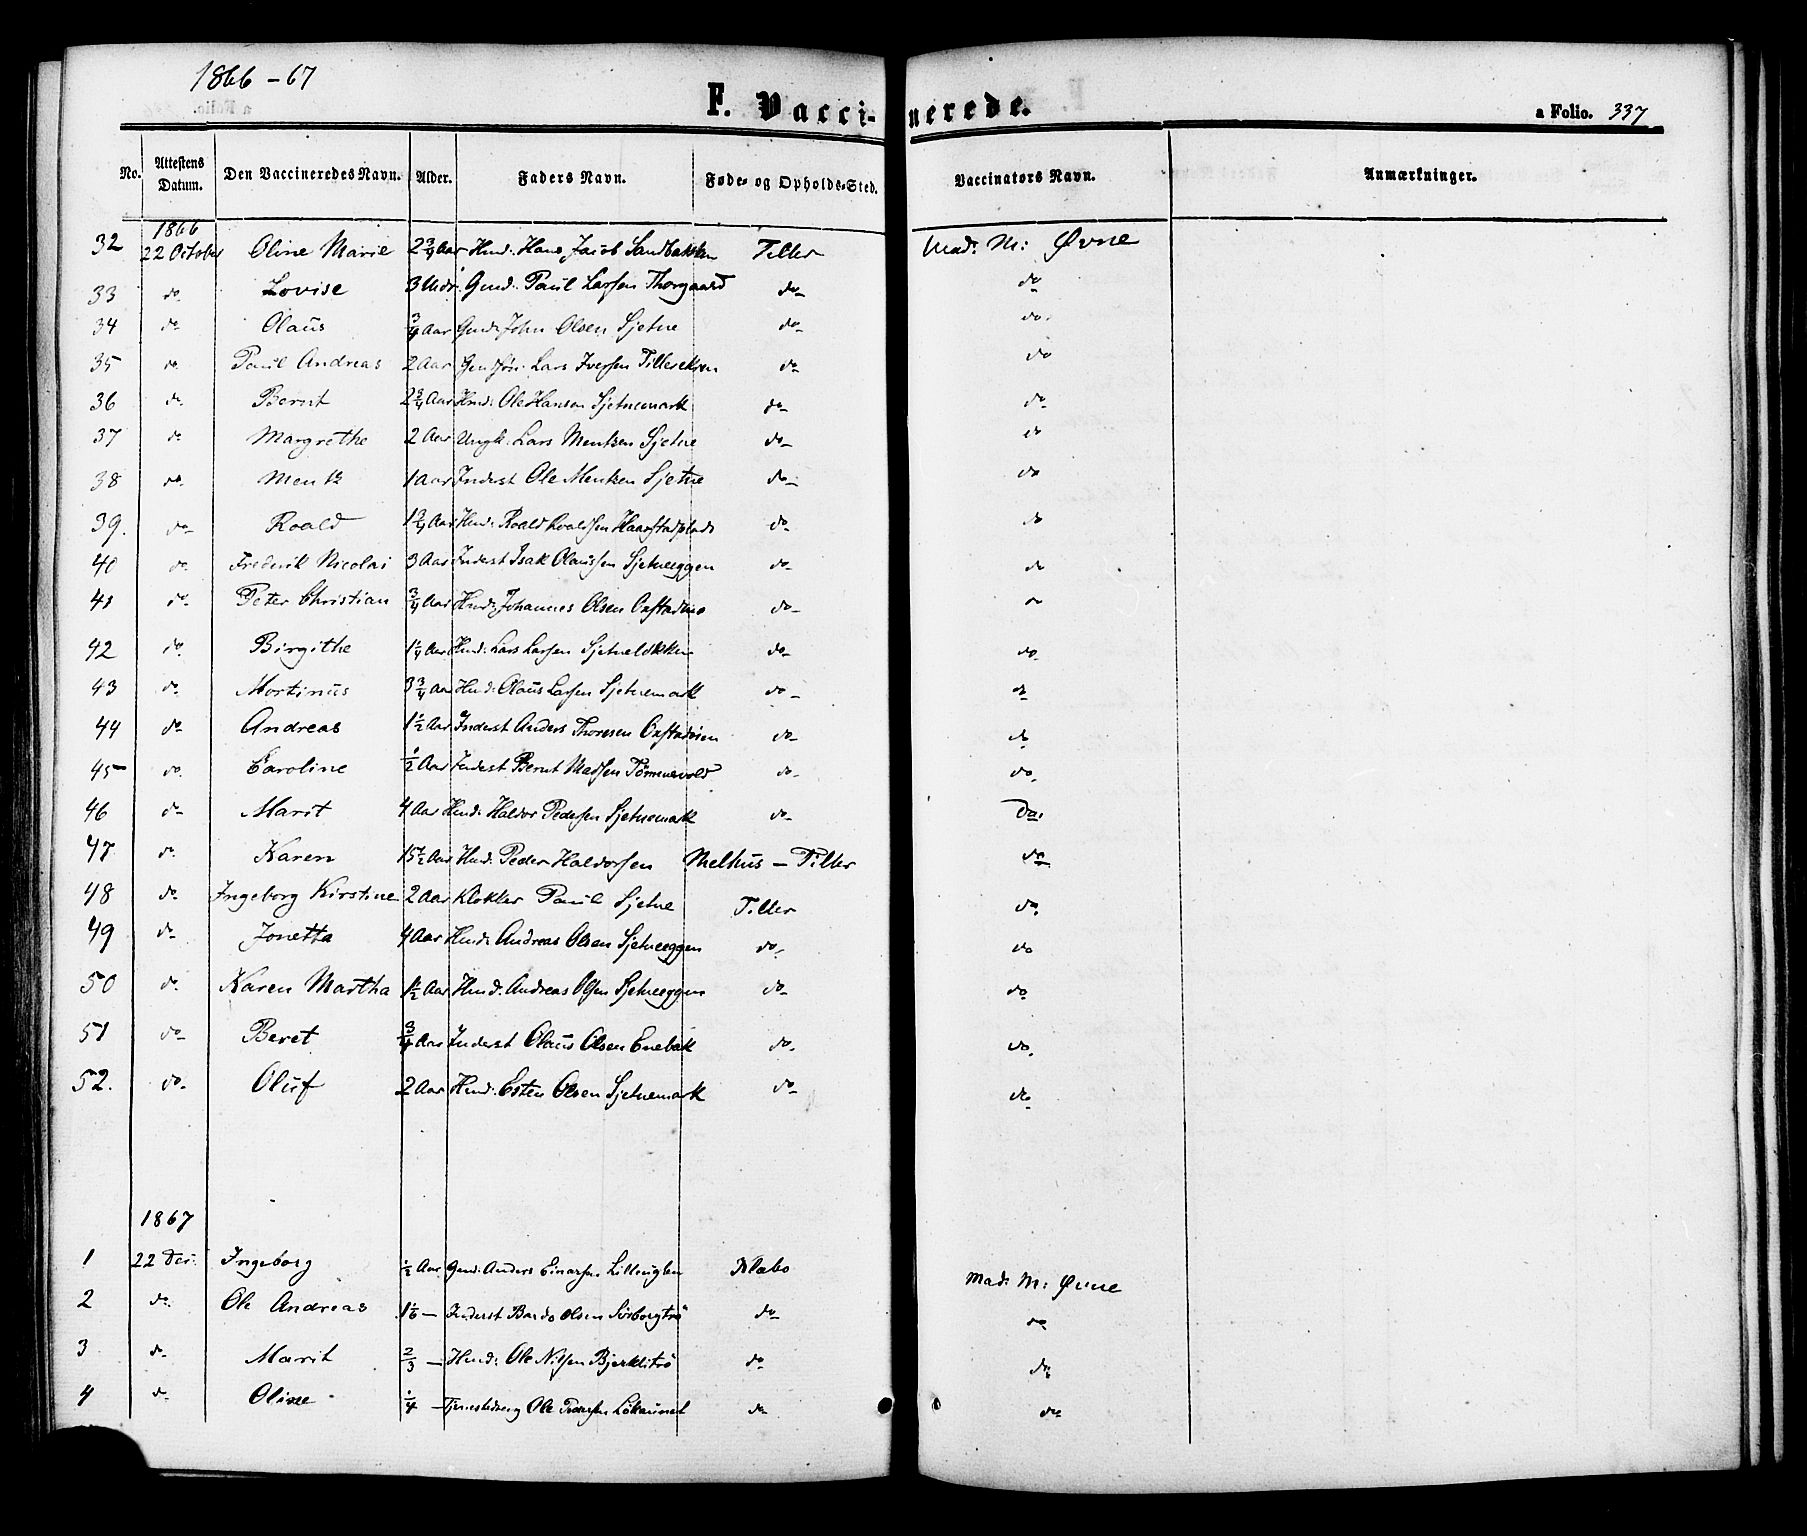 1866-67
F. Vaccinerede.
a Folio. 337
No. Attestens Datum. Den Vaccineredes Navn. Alder. Faders Navn. Føde- og Opholds-Sted. Vaccinators Navn. Anmærkninger.
1866
32 22 October Oline Marie 2 3/4 Aar Hmd: Hans Jacob Sandbakken Tiller Mad: M: Øvne
33 do Lovise 3 Mdr: Gmd: Paul Larsen Thorgaard do do
34 do Olaus 3/4 Aar Gmd: John Olsen Sjetne do do
35 do Paul Andreas 2 Aar Lars Iversen do do
36 do Bernt 2 3/4 Aar Hmd: Ole Hansen Sjetnemark do do
37 do Margrethe 2 Aar Ungk: Lars Mentzen Sjetne do do
38 do Mentz 1 Aar Inderst Ole Mentzen Sjetne do do
39. do Roald 1 3/4 Aar Hmd: Roald Roaldsen Haarstadplads do do
40 do Frederik Nicolai 3 Aar Inderst Isak Olaussen Sjetneeggen do do
41 do Peter Christian 3/4 Aar Hmd: Johannes Olsen do do
42 do Birgithe 1 1/4 Aar Hmd: Lars Larsen Sjetneløkken do do
43 do Mortinus 3 3/4 Aar Hmd: Olaus Larsen Sjetnemark do do
44 do Andreas 1 1/2 Aar Inderst Anders Thoresen do do
45 do Caroline 1/2 Aar Inderst Bernt Madsen Tømmervold do do
46 do Marit 4 Aar Hmd: Haldor Pedersen Sjetnemark do do
47 do Karen 15 1/2 Aar Hmd: Peder Haldorsen Melhus - Tiller do
48 do Ingeborg Kirstine 2 Aar Klokker Paul Sjetne Tiller do
49 do Jonetta 4 Aar Hmd: Andreas Olsen Sjetneeggen do do
50 do Karen Martha 1 1/2 Aar Hmd: Andreas Olsen Sjetneeggen do do
51 do Beret 3/4 Aar Inderst Olaus Olsen Enebak do do
52. do Oluf 2 Aar Hmd: Esten Olsen Sjetnemark do do
1867
1 22 Dec: Ingeborg 1/2 Aar Gmd: Anders Einarsen Klæbo Mad: M: Øvne
2 do Ole Andreas 1 1/6 - Inderst Bardo Olsen Sørborgtrø do do
3 do Marit 2/3 - Hmd: Ole Nilsen do do
4 do Oline 1/4 - Tjenestedreng Ole Pedersen do do